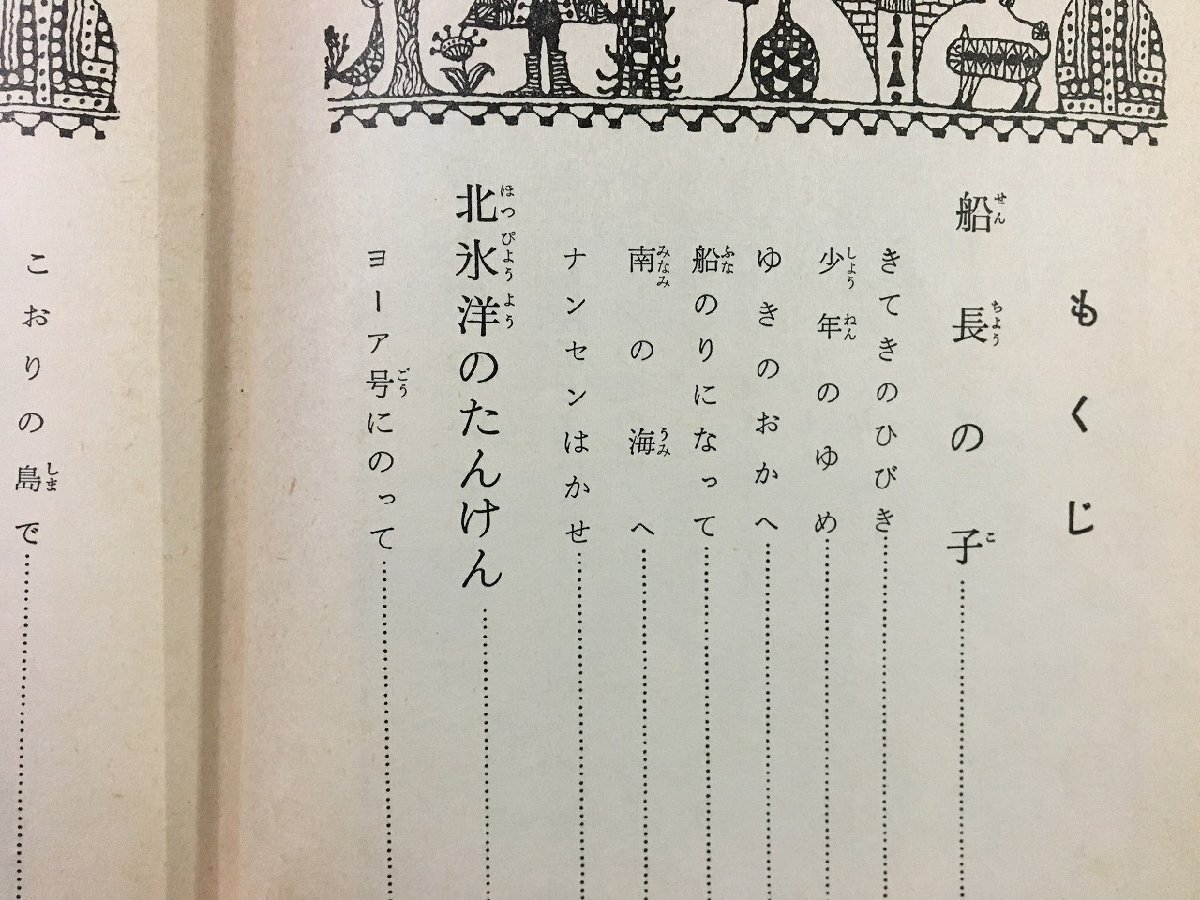 もくじ
船長の子
きてきのひびき
少年のゆめ
ゆきのおかへ
船のりになって
南の海へ
ナンセンはかせ
北氷洋のたんけん
ヨーア号にのって
こおりの島で